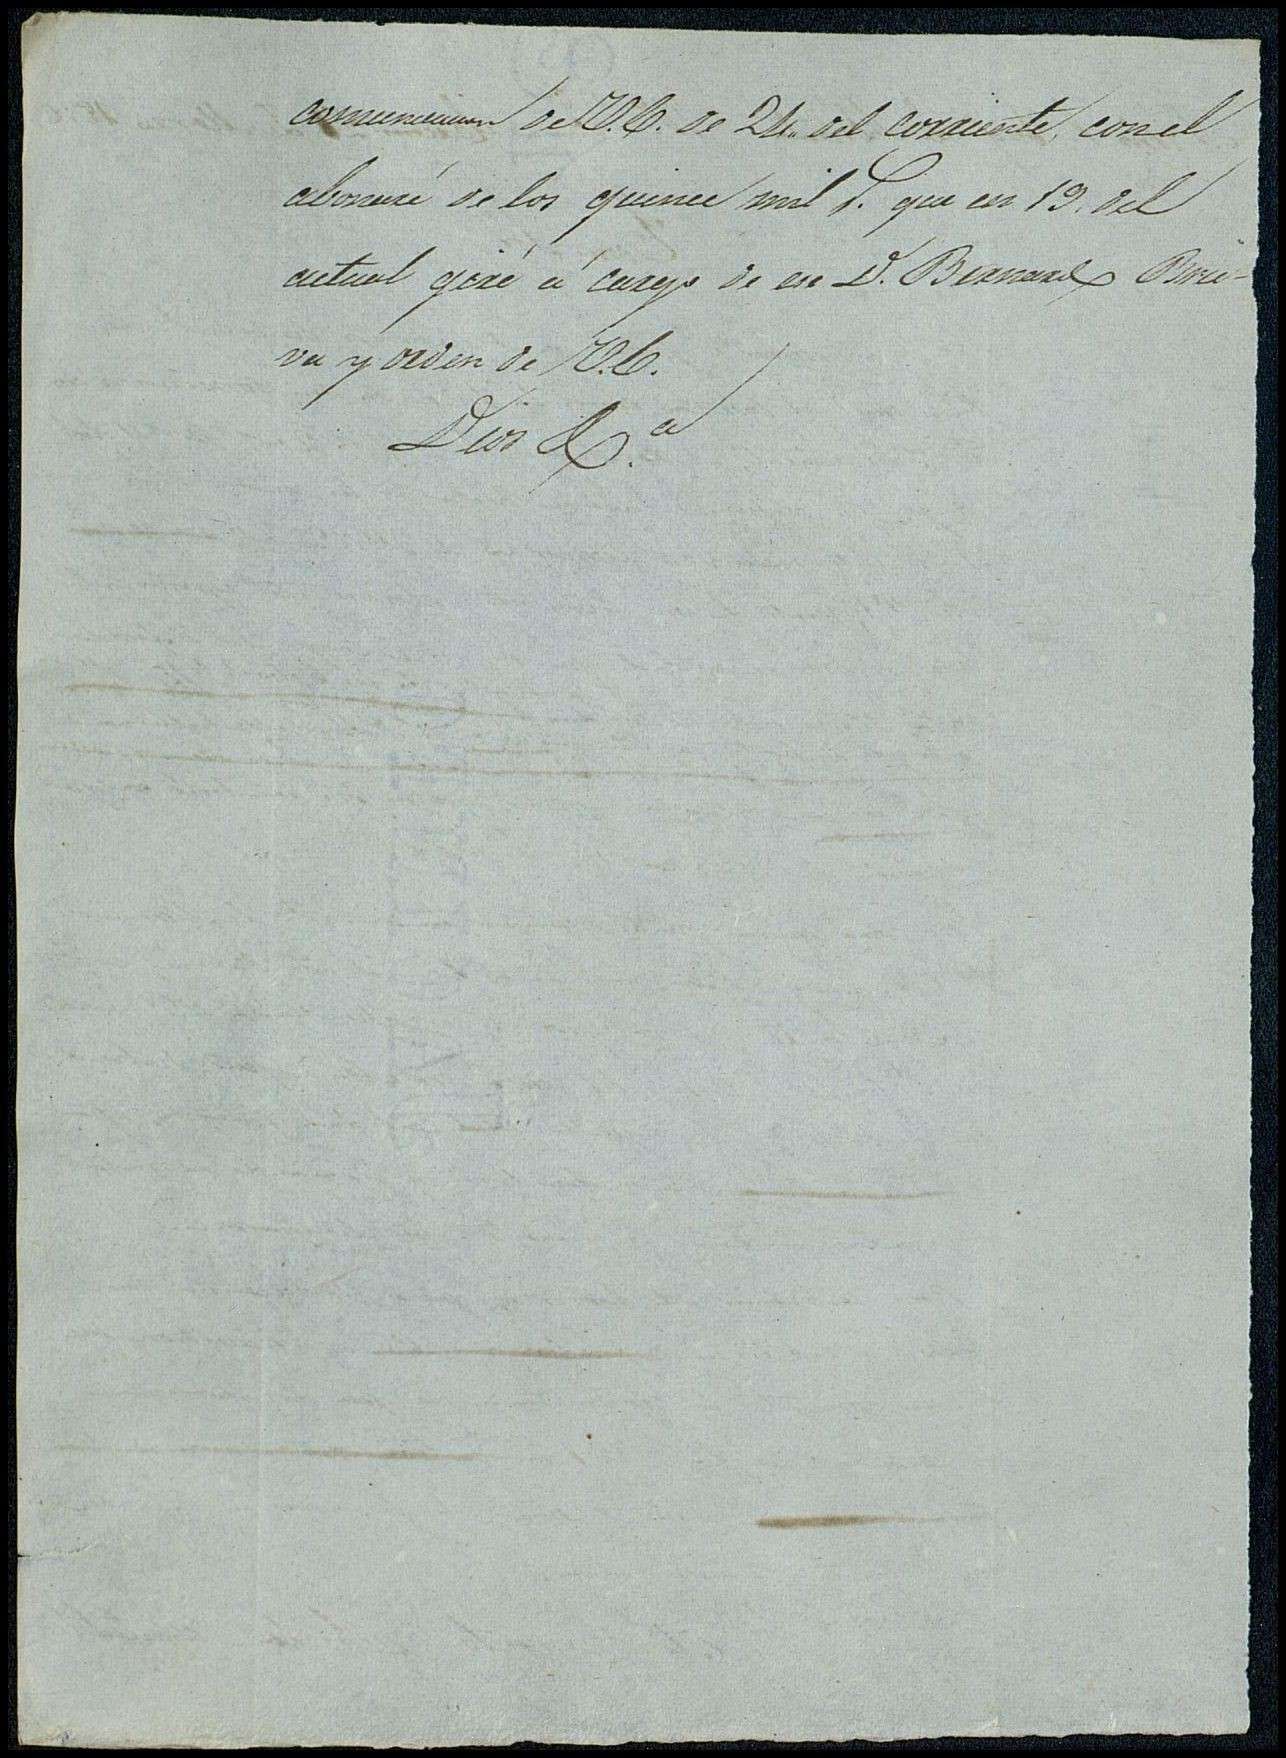 comunicacion de V.E. de 24. del corriente, con el
abonaré de los quince mil p. que en 19. del
actual giré á cargo de ese D. Bernardo Bria-
va y orden de V.E.
Dios &.a